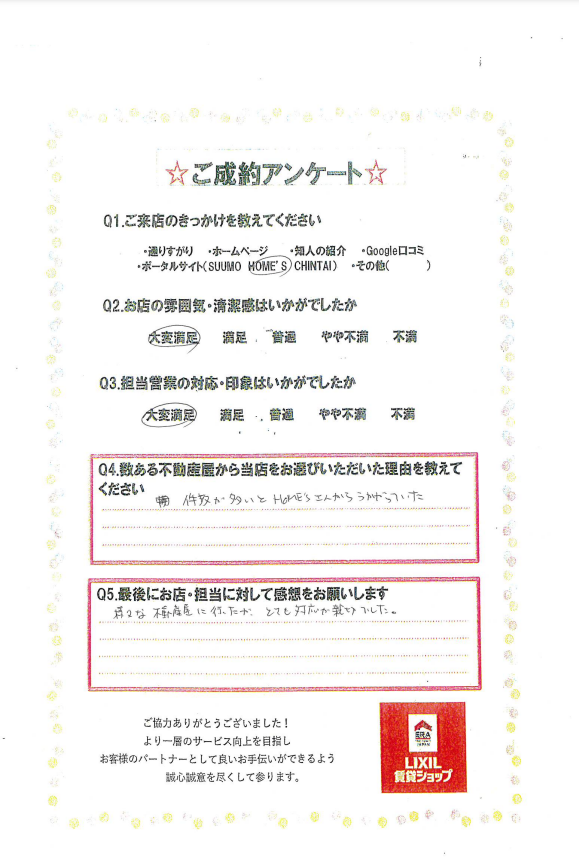 ☆ご成約アンケート☆
Q1.ご来店のきっかけを教えてください
・通りすがり ・ホームページ ・知人の紹介 ・Google口コミ
・ポータルサイト(SUUMO HOME'S CHINTAI) ・その他( )
Q2.お店の雰囲気・清潔感はいかがでしたか
大変満足 満足 普通 やや不満 不満
Q3.担当営業の対応・印象はいかがでしたか
大変満足 満足 普通 やや不満 不満
Q4.数ある不動産屋から当店をお選びいただいた理由を教えて
ください
件数が多いと HOME'Sさんから
Q5.最後にお店・担当に対して感想をお願いします
不動産屋に行ったが、とても対応が親切でした。
ご協力ありがとうございました！
より一層のサービス向上を目指し
お客様のパートナーとして良いお手伝いができるよう
誠心誠意を尽くして参ります。
ERA
JAPAN
LIXIL
賃貸ショップ